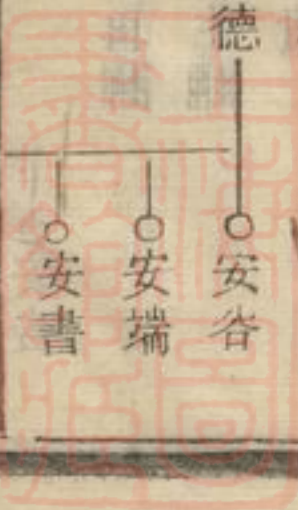 德
安谷
安端
安書